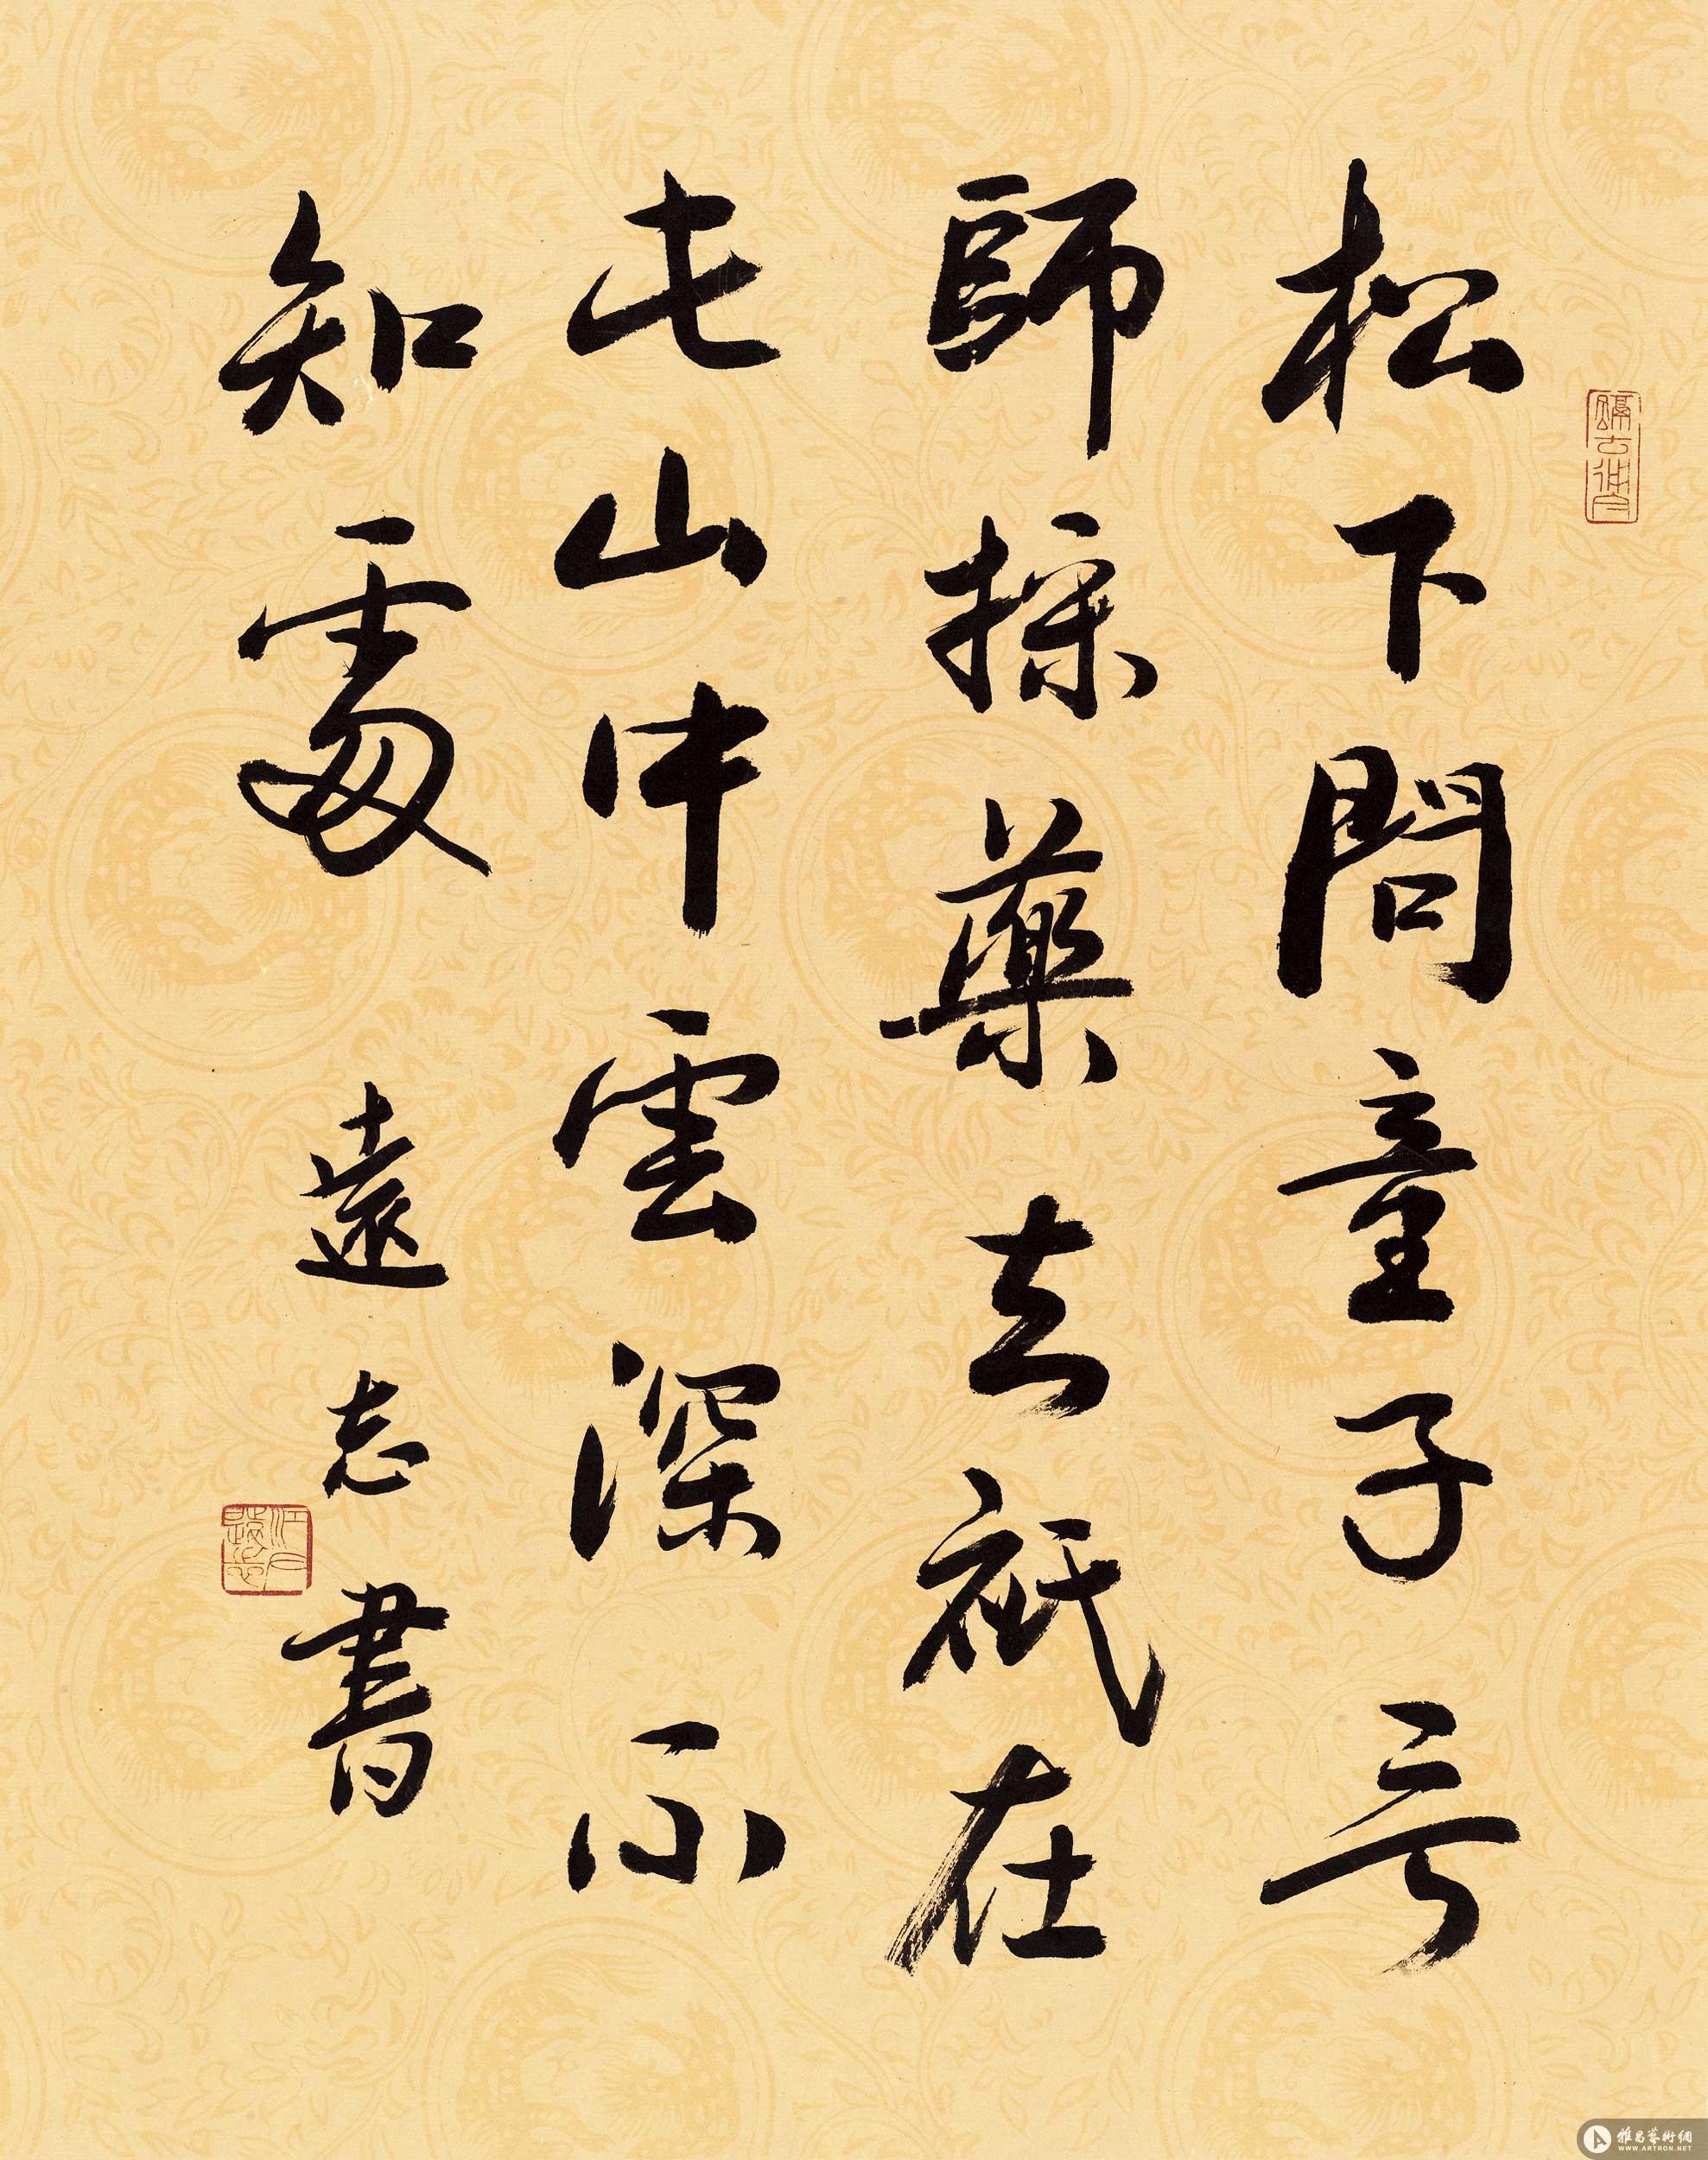 松下問童子言
師採藥去祇在
此山中雲深不
知處 遠志書
雅昌藝術網
WWW.ARTRON.NET